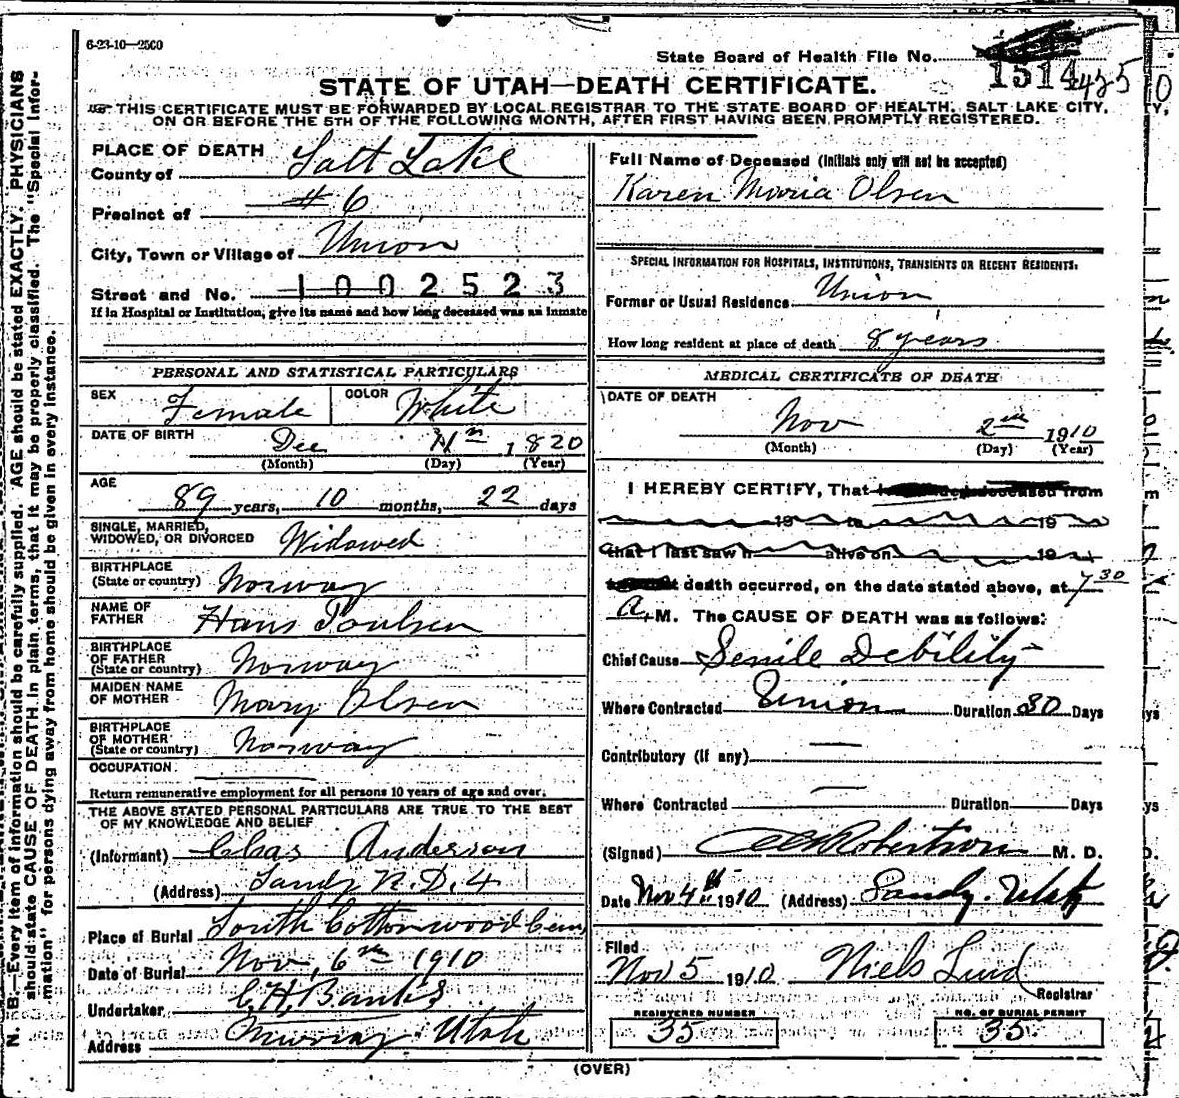 6-23-10—2500
State Board of Health File No.
1514 425
STATE OF UTAH—DEATH CERTIFICATE.
THIS CERTIFICATE MUST BE FORWARDED BY LOCAL REGISTRAR TO THE STATE BOARD OF HEALTH, SALT LAKE CITY,
ON OR BEFORE THE 5TH OF THE FOLLOWING MONTH, AFTER FIRST HAVING BEEN PROMPTLY REGISTERED.
PLACE OF DEATH
County of Salt Lake
Precinct of # 6
City, Town or Village of Union
Street and No. 1002523
If in Hospital or Institution, give its name and how long deceased was an inmate
PERSONAL AND STATISTICAL PARTICULARS
SEX Female COLOR White
DATE OF BIRTH Dec 11th 1820
(Month) (Day) (Year)
AGE
89 years, 10 months, 22 days
SINGLE, MARRIED,
WIDOWED, OR DIVORCED Widowed
BIRTHPLACE
(State or country) Norway
NAME OF
FATHER Hans Poulsen
BIRTHPLACE
OF FATHER
(State or country) Norway
MAIDEN NAME
OF MOTHER Mary Olsen
BIRTHPLACE
OF MOTHER
(State or country) Norway
OCCUPATION
Return remunerative employment for all persons 10 years of age and over.
THE ABOVE STATED PERSONAL PARTICULARS ARE TRUE TO THE BEST
OF MY KNOWLEDGE AND BELIEF
(Informant) Chas Anderson
(Address) Sandy R.D. 4
Place of Burial South Cottonwood Cem
Date of Burial Nov, 6th 1910
Undertaker C.H. Banks
Address Murray Utah
Full Name of Deceased (Initials only will not be accepted)
Karen Maria Olsen
SPECIAL INFORMATION FOR HOSPITALS, INSTITUTIONS, TRANSIENTS OR RECENT RESIDENTS:
Former or Usual Residence Union
How long resident at place of death 8 years
MEDICAL CERTIFICATE OF DEATH
DATE OF DEATH
Nov 2nd 1910
(Month) (Day) (Year)
I HEREBY CERTIFY, That deceased from
19 to 19
that I last saw h alive on 19
death occurred, on the date stated above, at 7 30
a. M. The CAUSE OF DEATH was as follows:
Chief Cause Senile Debility
Where Contracted Union Duration 30 Days
Contributory (if any) —
Where Contracted — Duration Days
(Signed) Robertson M. D.
Date Nov 4th 1910 (Address) Sandy, Utah
Filed
Nov 5 1910 Niels Lind
Registrar
REGISTERED NUMBER
35
NO. OF BURIAL PERMIT
35
(OVER)
N. B.—Every item of information should be carefully supplied. AGE should be stated EXACTLY. PHYSICIANS
should state CAUSE OF DEATH in plain terms, that it may be properly classified. The "Special Infor-
mation" for persons dying away from home should be given in every instance.